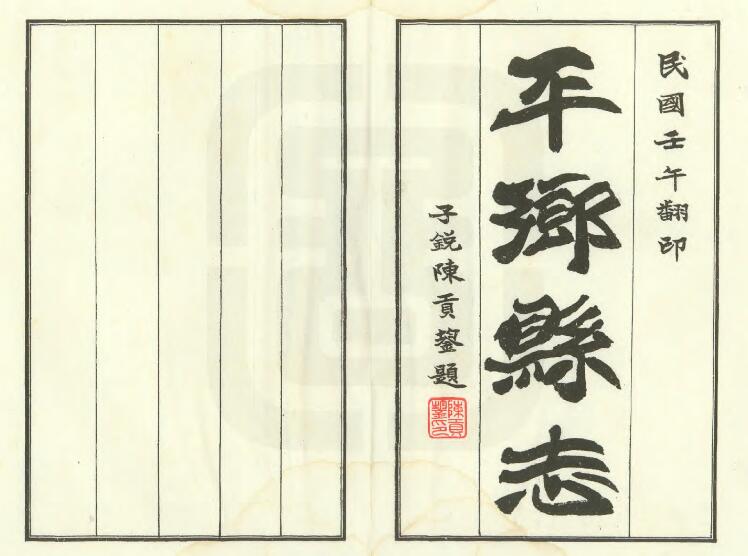 民國壬午翻印
平鄉縣志
子銳陳貢鋆題
陳貢鋆印